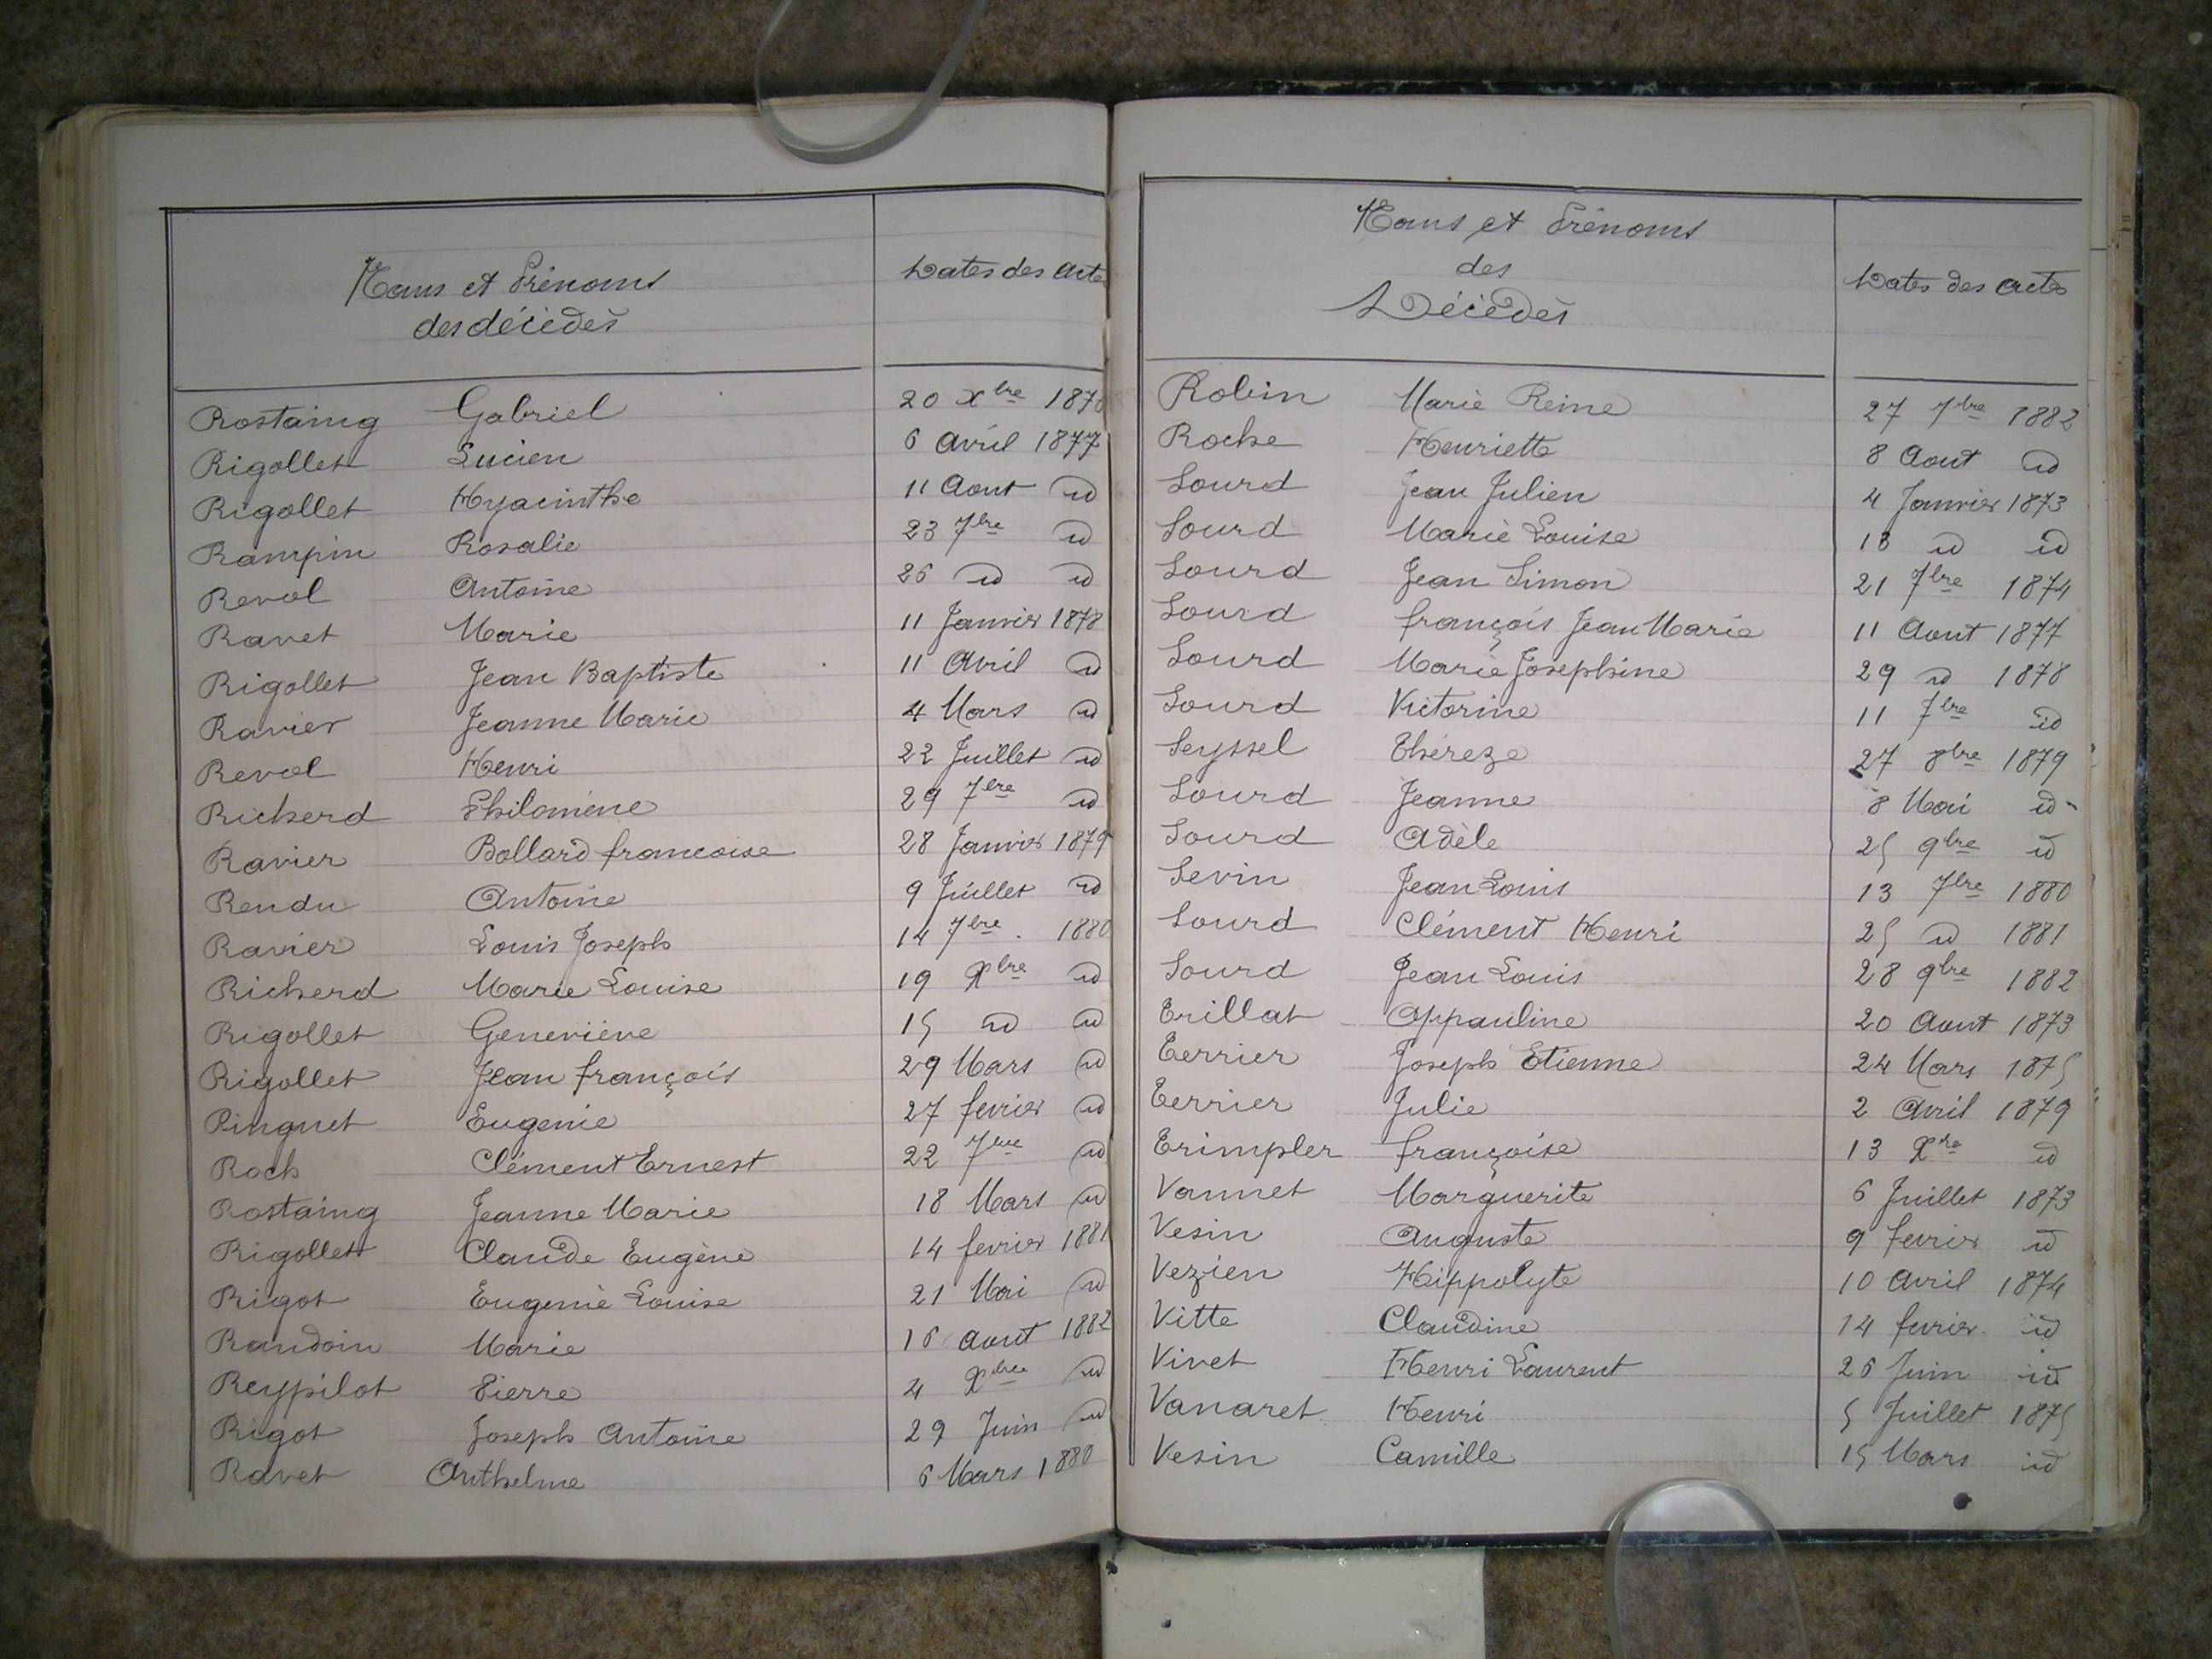 Noms et Prénoms
des décèdés
Dates des acte
Rostaing Gabriel 20 Xbre 1876
Rigollet Lucien 6 avril 1877
Rigollet Hyacinthe 11 Aout id
Rampin Rosalie 23 7bre id
Revol Antoine 26 id id
Ravet Marie 11 Janvier 1878
Rigollet Jean Baptiste 11 Avril id
Ravier Jeanne Marie 4 Mars id
Revol Henri 22 Juillet id
Richerd Philomène 29 7bre id
Ravier Bollard francoise 28 Janvier 1879
Rendu Antoine 9 Juillet id
Ravier Louis Joseph 14 7bre 1880
Richerd Marie Louise 19 Xbre id
Rigollet Geneviève 15 id id
Rigollet Jean françois 29 Mars id
Pinguet Eugenie 27 fevrier id
Roch Clément Ernest 22 7bre id
Rostaing Jeanne Marie 18 Mars id
Rigollet Claude Eugène 14 fevrier 1881
Rigot Eugenie Louise 21 Mai id
Raudoin Marie 16 aout 1882
Reypilot Pierre 4 Xbre id
Rigot Joseph Antoine 29 Juin id
Ravet Anthelme 6 Mars 1880
Noms et Prénoms
des
Décèdés
Dates des actes
Robin Marie Reine 27 7bre 1882
Roche Henriette 8 Aout id
Sourd Jean Julien 4 Janvier 1873
Sourd Marie Louise 18 id id
Sourd Jean Simon 21 7bre 1874
Sourd françois Jean Marie 11 Aout 1877
Sourd Marie Josephine 29 id 1878
Sourd Victorine 11 7bre id
Seyssel Thérèze 27 8bre 1879
Sourd Jeanne 8 Mai id
Sourd Adèle 25 9bre id
Sevin Jean Louis 13 7bre 1880
Sourd Clément Henri 25 id 1881
Sourd Jean Louis 28 9bre 1882
Trillat Appauline 20 Aout 1873
Terrier Joseph Etienne 24 Mars 1875
Terrier Julie 2 Avril 1879
Trimpler françoise 13 Xre id
Vannet Marguerite 6 Juillet 1873
Vesin Auguste 9 fevrier id
Vezien Hippolyte 10 Avril 1874
Vitte Claudine 14 fevrier id
Vivet Henri Laurent 26 Juin id
Vanaret Henri 5 Juillet 1875
Vesin Camille 15 Mars id